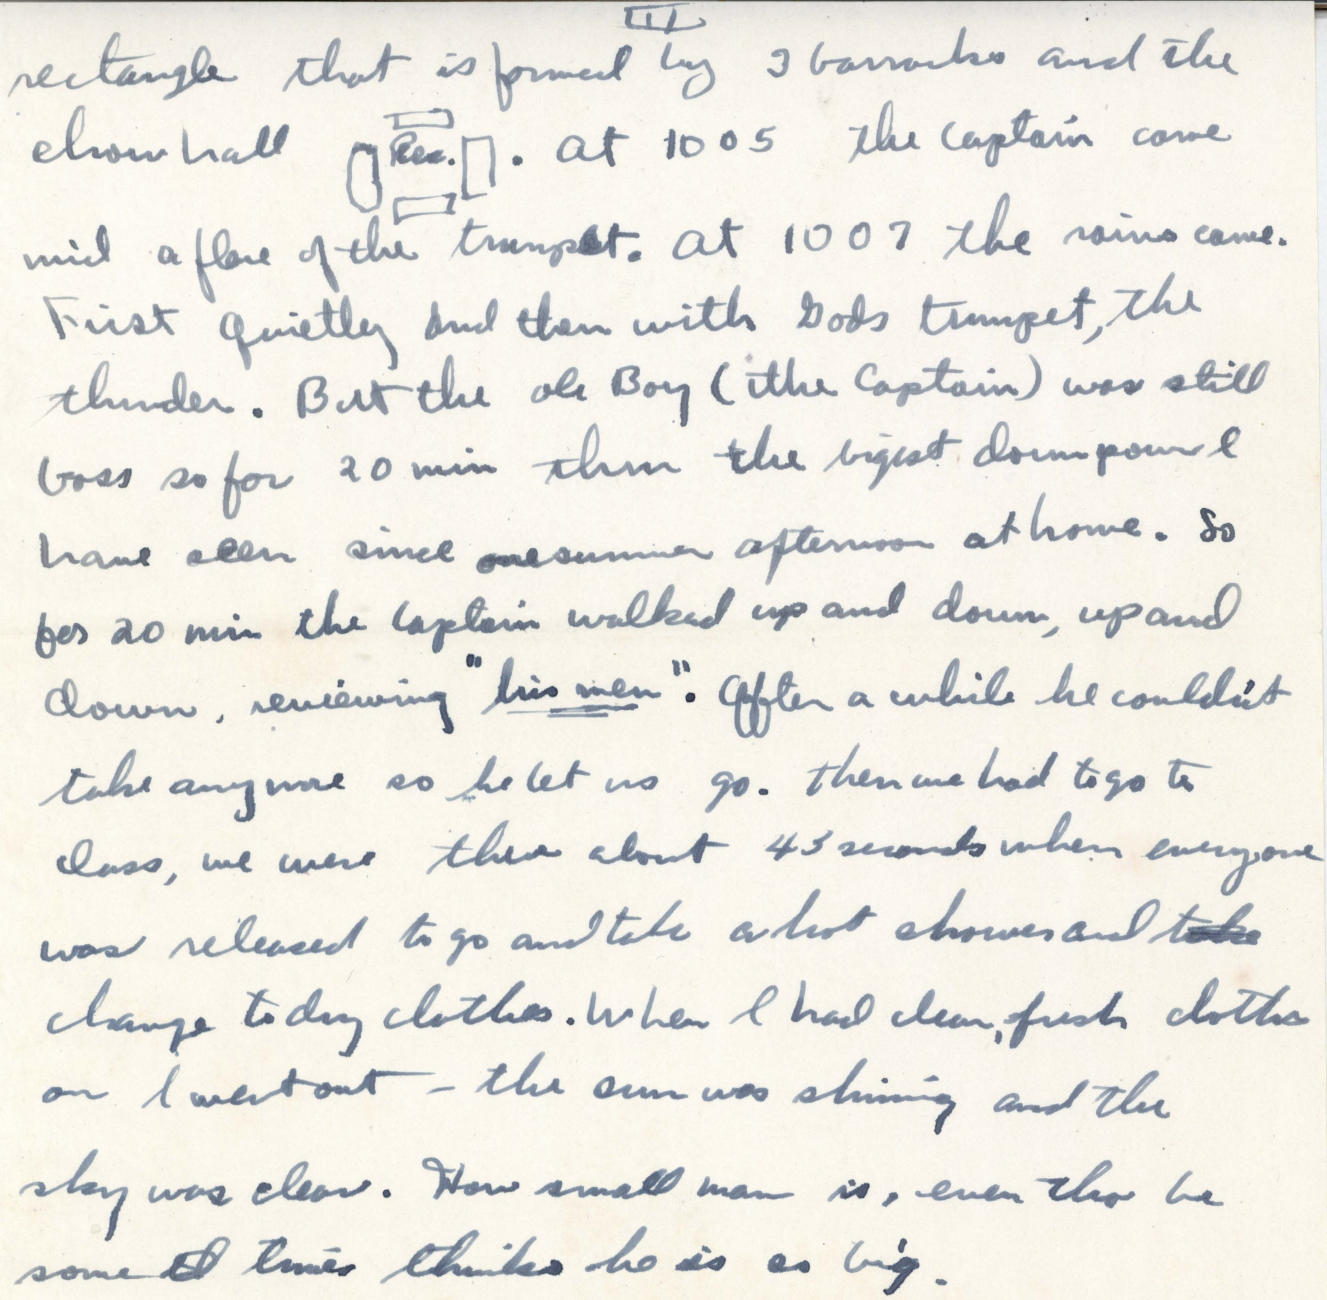 III
rectangle that is formed by 3 barracks and the
chow hall Rec. . At 1005 the Captain came
mid a flare of the trumpet. At 1007 the rains came.
First quietly and then with Gods trumpet, the
thunder. But the ole Boy (the Captain) was still
boss so for 20 min thru the bigest downpour I
have seen since one summer afternoon at home. So
for 20 min the Captain walked up and down, up and
down, reviewing "his men". After a while he couldn't
take anymore so he let us go. Then we had to go to
class, we were there about 45 seconds when everyone
was released to go and take a hot shower and take
change to dry clothes. When I had clean, fresh clothes
on I went out – the sun was shining and the
sky was clear. How small man is, even tho he
some times thinks he is so big.